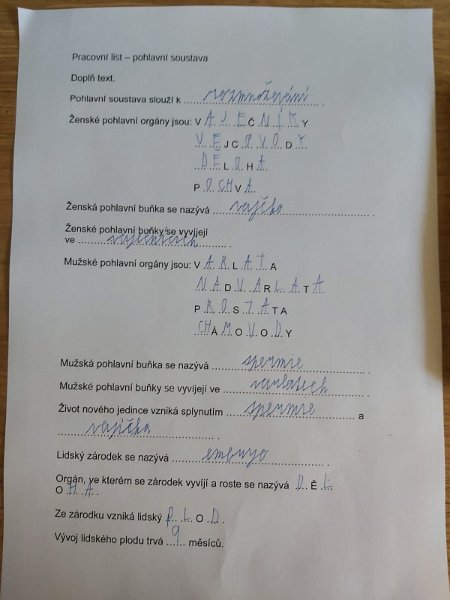 Pracovní list – pohlavní soustava
Doplň text.
Pohlavní soustava slouží k rozmnožování.
Ženské pohlavní orgány jsou: VAJEČNÍKY
VEJCOVODY
DĚLOHA
POCHVA
Ženská pohlavní buňka se nazývá vajíčko.
Ženské pohlavní buňky se vyvíjejí
ve vaječnících.
Mužské pohlavní orgány jsou: VARLATA
NADVARLATA
PROSTATA
CHÁMOVODY
Mužská pohlavní buňka se nazývá spermie.
Mužské pohlavní buňky se vyvíjejí ve varlatech.
Život nového jedince vzniká splynutím spermie a
vajíčka.
Lidský zárodek se nazývá embryo.
Orgán, ve kterém se zárodek vyvíjí a roste se nazývá DĚL
OHA.
Ze zárodku vzniká lidský PLOD.
Vývoj lidského plodu trvá 9 měsíců.